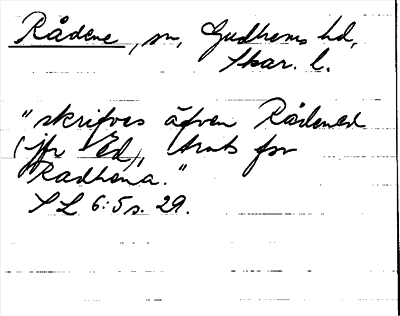 Rådene, sn, Gudhems hd,
Skar. l.
"skrifves äfven Rådened
(jfr Ed), trots for
Radhena."
SL 6:5 s. 29.